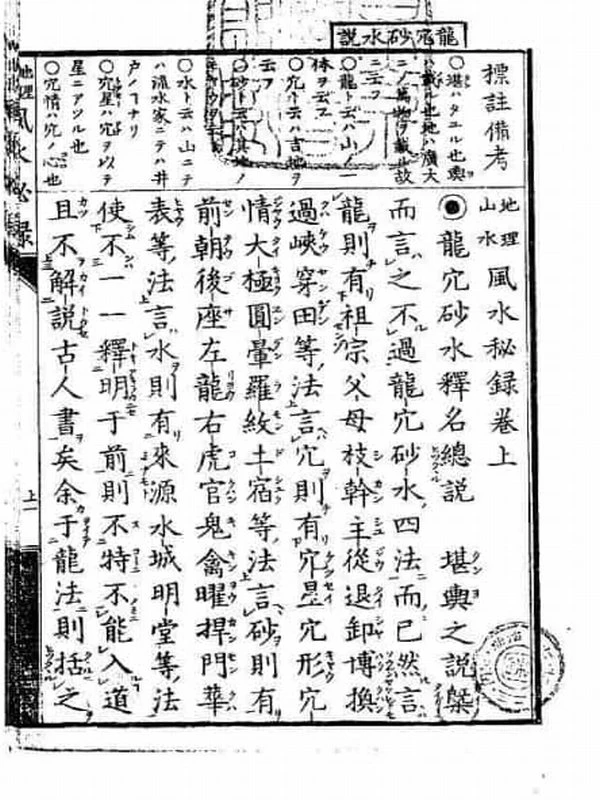 龍穴砂水説
標註備考
○堪ハタエル也輿
ハ載ル也地ハ廣大
ニノ萬物ヲ載ル故
ニ云フ
○龍ト云ハ山ノ一
体ヲ云フ
○穴ト云ハ吉地ヲ
云フ
○砂ト云ハ其地ノ
○水ト云ハ山ニテ
ハ流水家ニテハ井
戸ノヿナリ
○穴星ハ穴ヲ以テ
星ニアツル也
○穴情ハ穴ノ心也
地理山水風水秘録巻上
龍穴砂水釋名總説 堪輿之説槩
而言之不過龍穴砂水四法而已然言
龍則有祖宗父母枝幹主從退卸博換
過峽穿田等法言穴則有穴星穴形穴
情大極圓暈羅紋土宿等法言砂則有
前朝後座左龍右虎官鬼禽曜捍門華
表等法言水則有來源水城明堂等法
使不一一釋明于前則不特不能入道
且不解説古人書矣余于龍法則括之
地理風水秘録
上一